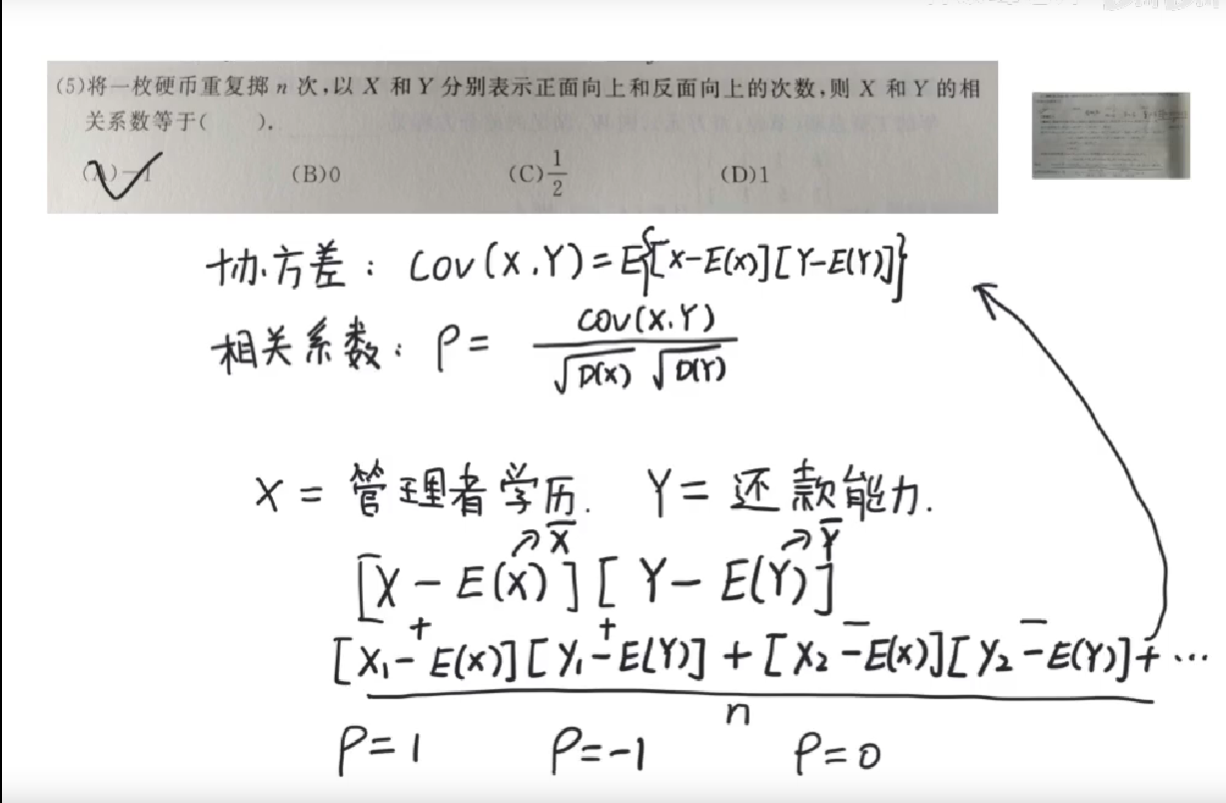 (5)将一枚硬币重复掷 n 次,以 X 和 Y 分别表示正面向上和反面向上的次数,则 X 和 Y 的相
关系数等于(    ).
(A)-1 (B)0 (C)1/2 (D)1
协方差: Cov(X,Y)=E{[X-E(X)][Y-E(Y)]}
相关系数: ρ= COV(X,Y)/√D(X) √D(Y)
X = 管理者学历. Y = 还款能力.
↗X̄ ↗Ȳ
[X-E(X)][Y-E(Y)]
+ + - -
[X₁-E(X)][Y₁-E(Y)]+[X₂-E(X)][Y₂-E(Y)]+…
n
ρ=1 ρ=-1 ρ=0